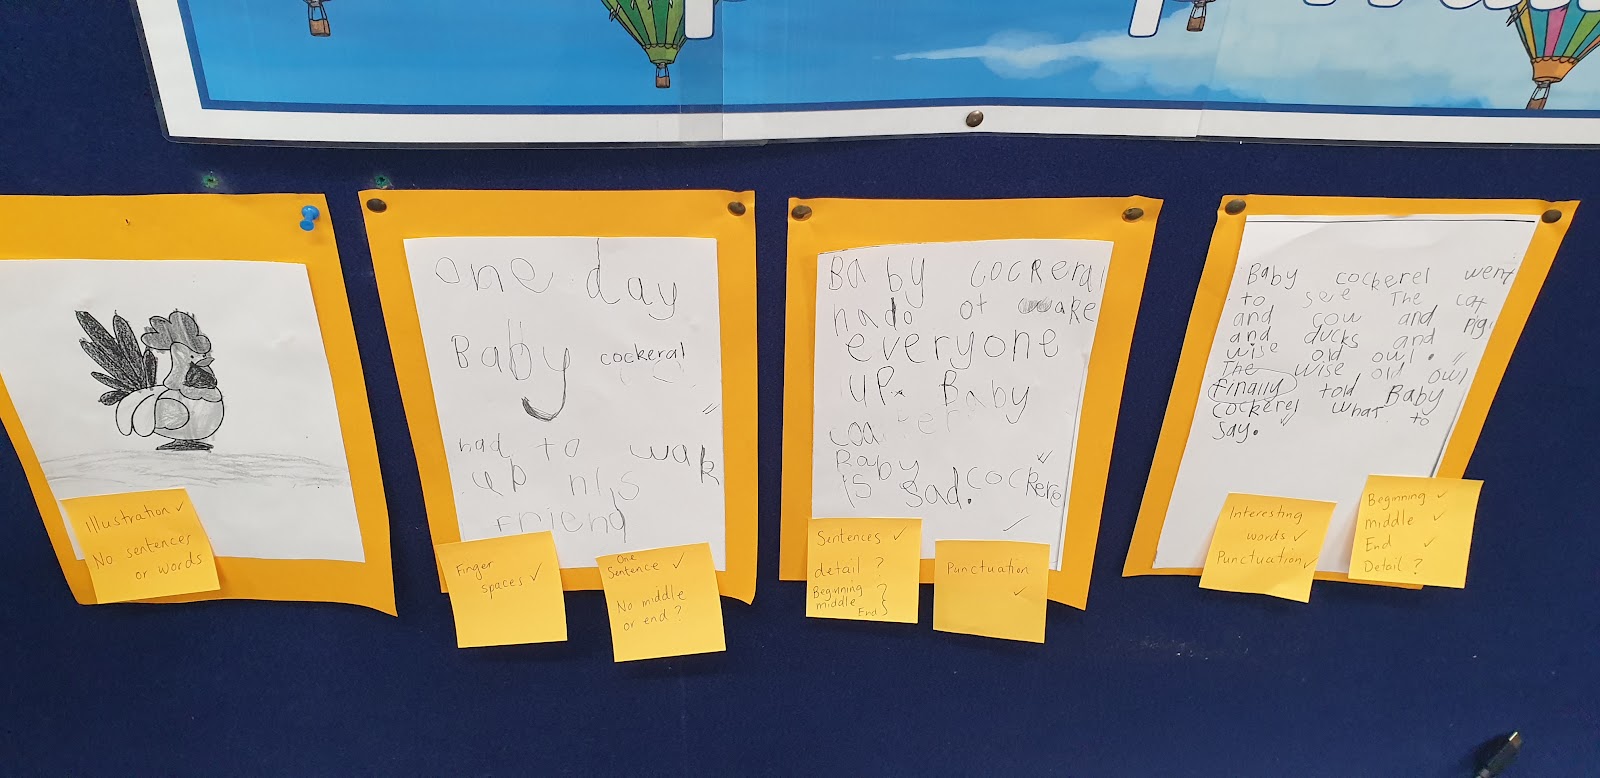 Illustration ✓
No sentences
or words
one day
Baby cockeral
had to wak
up his
Friend
Finger
spaces ✓
One
Sentence ✓
No middle
or end?
Baby cockeral
hado ot wake
everyone
up. Baby
Baby
is sad. cockerel
Sentences ✓
detail ?
Beginning ?
middle
End
Punctuation
✓
Baby cockerel went
to see The cat
and cow and pig
and ducks and
wise old owl.
The wise old owl
finally told Baby
cockerel what to
say.
Interesting
words ✓
Punctuation ✓
Beginning ✓
middle ✓
End ✓
Detail ?